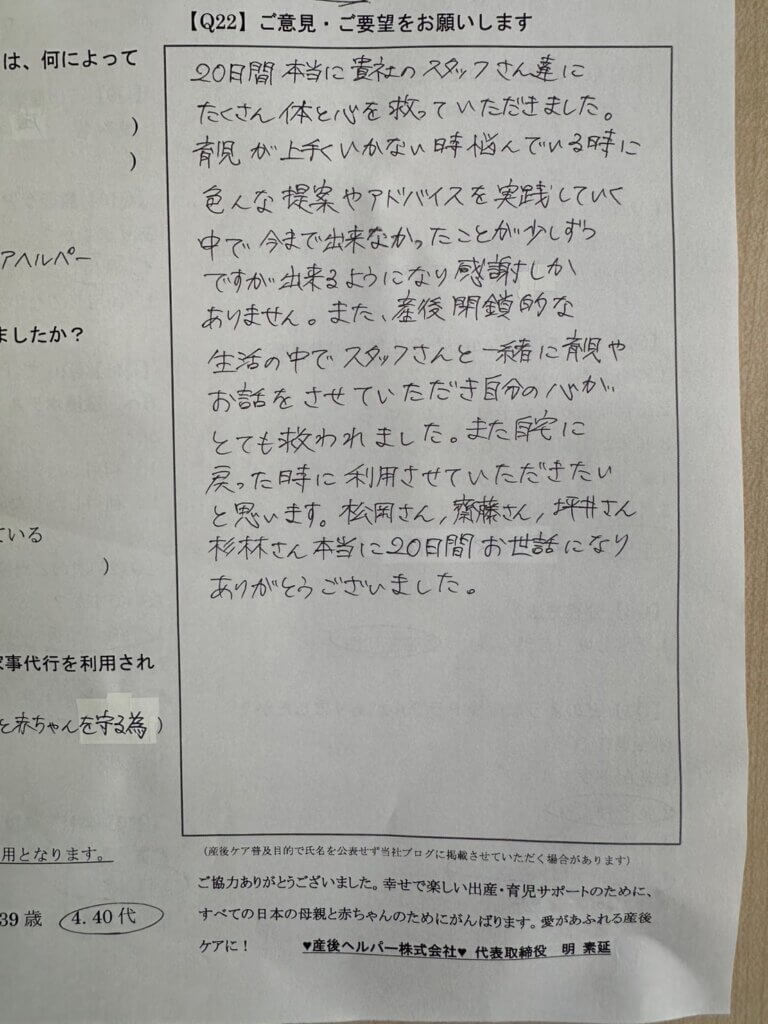 【Q22】ご意見・ご要望をお願いします
は、何によって
20日間本当に貴社のスタッフさん達に
たくさん体と心を救っていただきました。
)
育児が上手くいかない時悩んでいる時に
)
色んな提案やアドバイスを実践していく
中で今まで出来なかったことが少しずつ
アヘルパー
ですが出来るようになり感謝しか
ありません。また、産後閉鎖的な
ましたか？
生活の中でスタッフさんと一緒に育児や
お話をさせていただき自分の心が
とても救われました。また自宅に
戻った時に利用させていただきたい
と思います。松岡さん,齋藤さん,坪井さん
ている
杉林さん本当に20日間お世話になり
)
ありがとうございました。
家事代行を利用され
と赤ちゃんを守る為)
用となります。
（産後ケア普及目的で氏名を公表せず当社ブログに掲載させていただく場合があります）
ご協力ありがとうございました。幸せで楽しい出産・育児サポートのために、
39歳 4.40代
すべての日本の母親と赤ちゃんのためにがんばります。愛があふれる産後
ケアに！ ♥産後ヘルパー株式会社♥ 代表取締役 明 素延